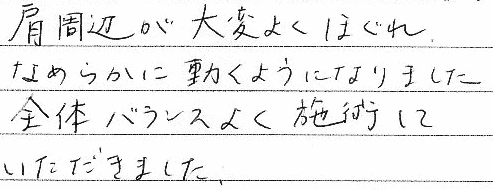 肩周辺が大変よくほぐれ、
なめらかに動くようになりました
全体バランスよく施術して
いただきました。